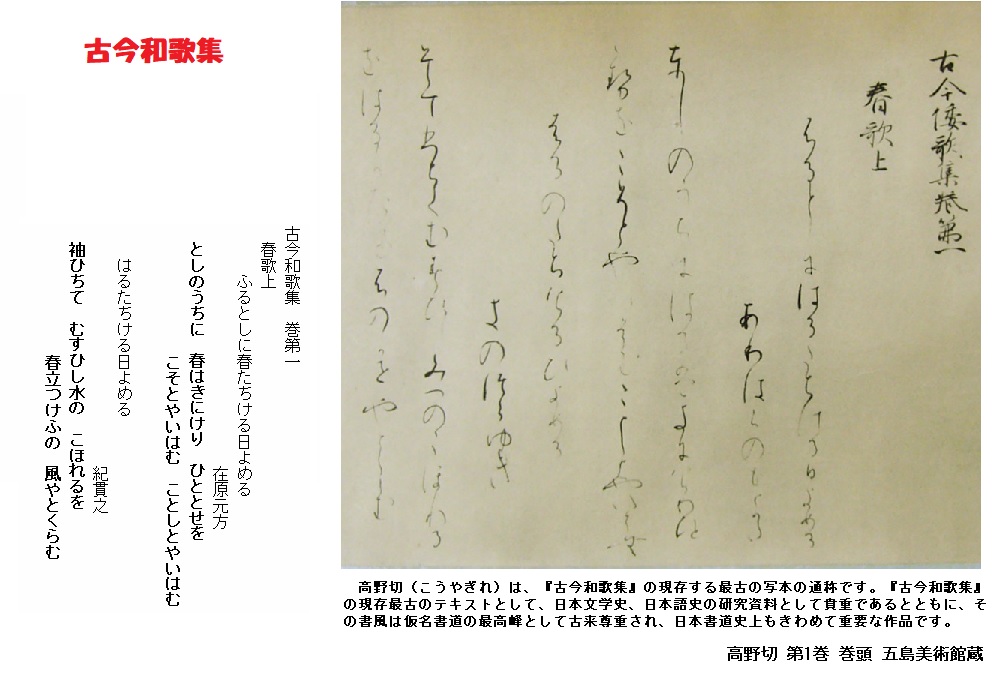 古今和歌集
古今倭歌集巻第一
春歌上
ふるとしにはるたちける日よめる
ありはらのもとかた
としのうちにはるはきにけりひととせを
こそとやいはむことしとやいはむ
はるのたちけるひよめる
きのつらゆき
そてひちてむすひしみつのこほれる
をはるかたつけふのかせやとくらむ
古今和歌集 巻第一
春歌上
ふるとしに春たちける日よめる
在原元方
としのうちに 春はきにけり ひととせを
こそとやいはむ ことしとやいはむ
はるたちける日よめる
紀貫之
袖ひちて むすひし水の こほれるを
春立つけふの 風やとくらむ
高野切(こうやぎれ)は、『古今和歌集』の現存する最古の写本の通称です。『古今和歌集』
の現存最古のテキストとして、日本文学史、日本語史の研究資料として貴重であるとともに、そ
の書風は仮名書道の最高峰として古来尊重され、日本書道史上もきわめて重要な作品です。
高野切 第1巻 巻頭 五島美術館蔵